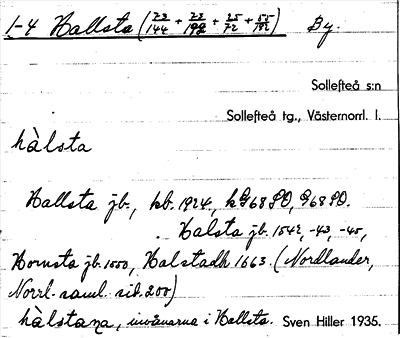 1-4 Hallsta (23/144 + 23/192 + 25/72 + 55/192) By.
Sollefteå s:n
Sollefteå tg., Västernorrl. l.
hàlsta
Hallsta jb., kb. 1924, kG68SO, G68SO.
Halsta jb. 1542, -43, -45,
Hornsta jb. 1550, Halstadh 1663. (Nordlander,
Norrl. saml. sid. 200)
hàlstana, invånarna i Hallsta. Sven Hiller 1935.